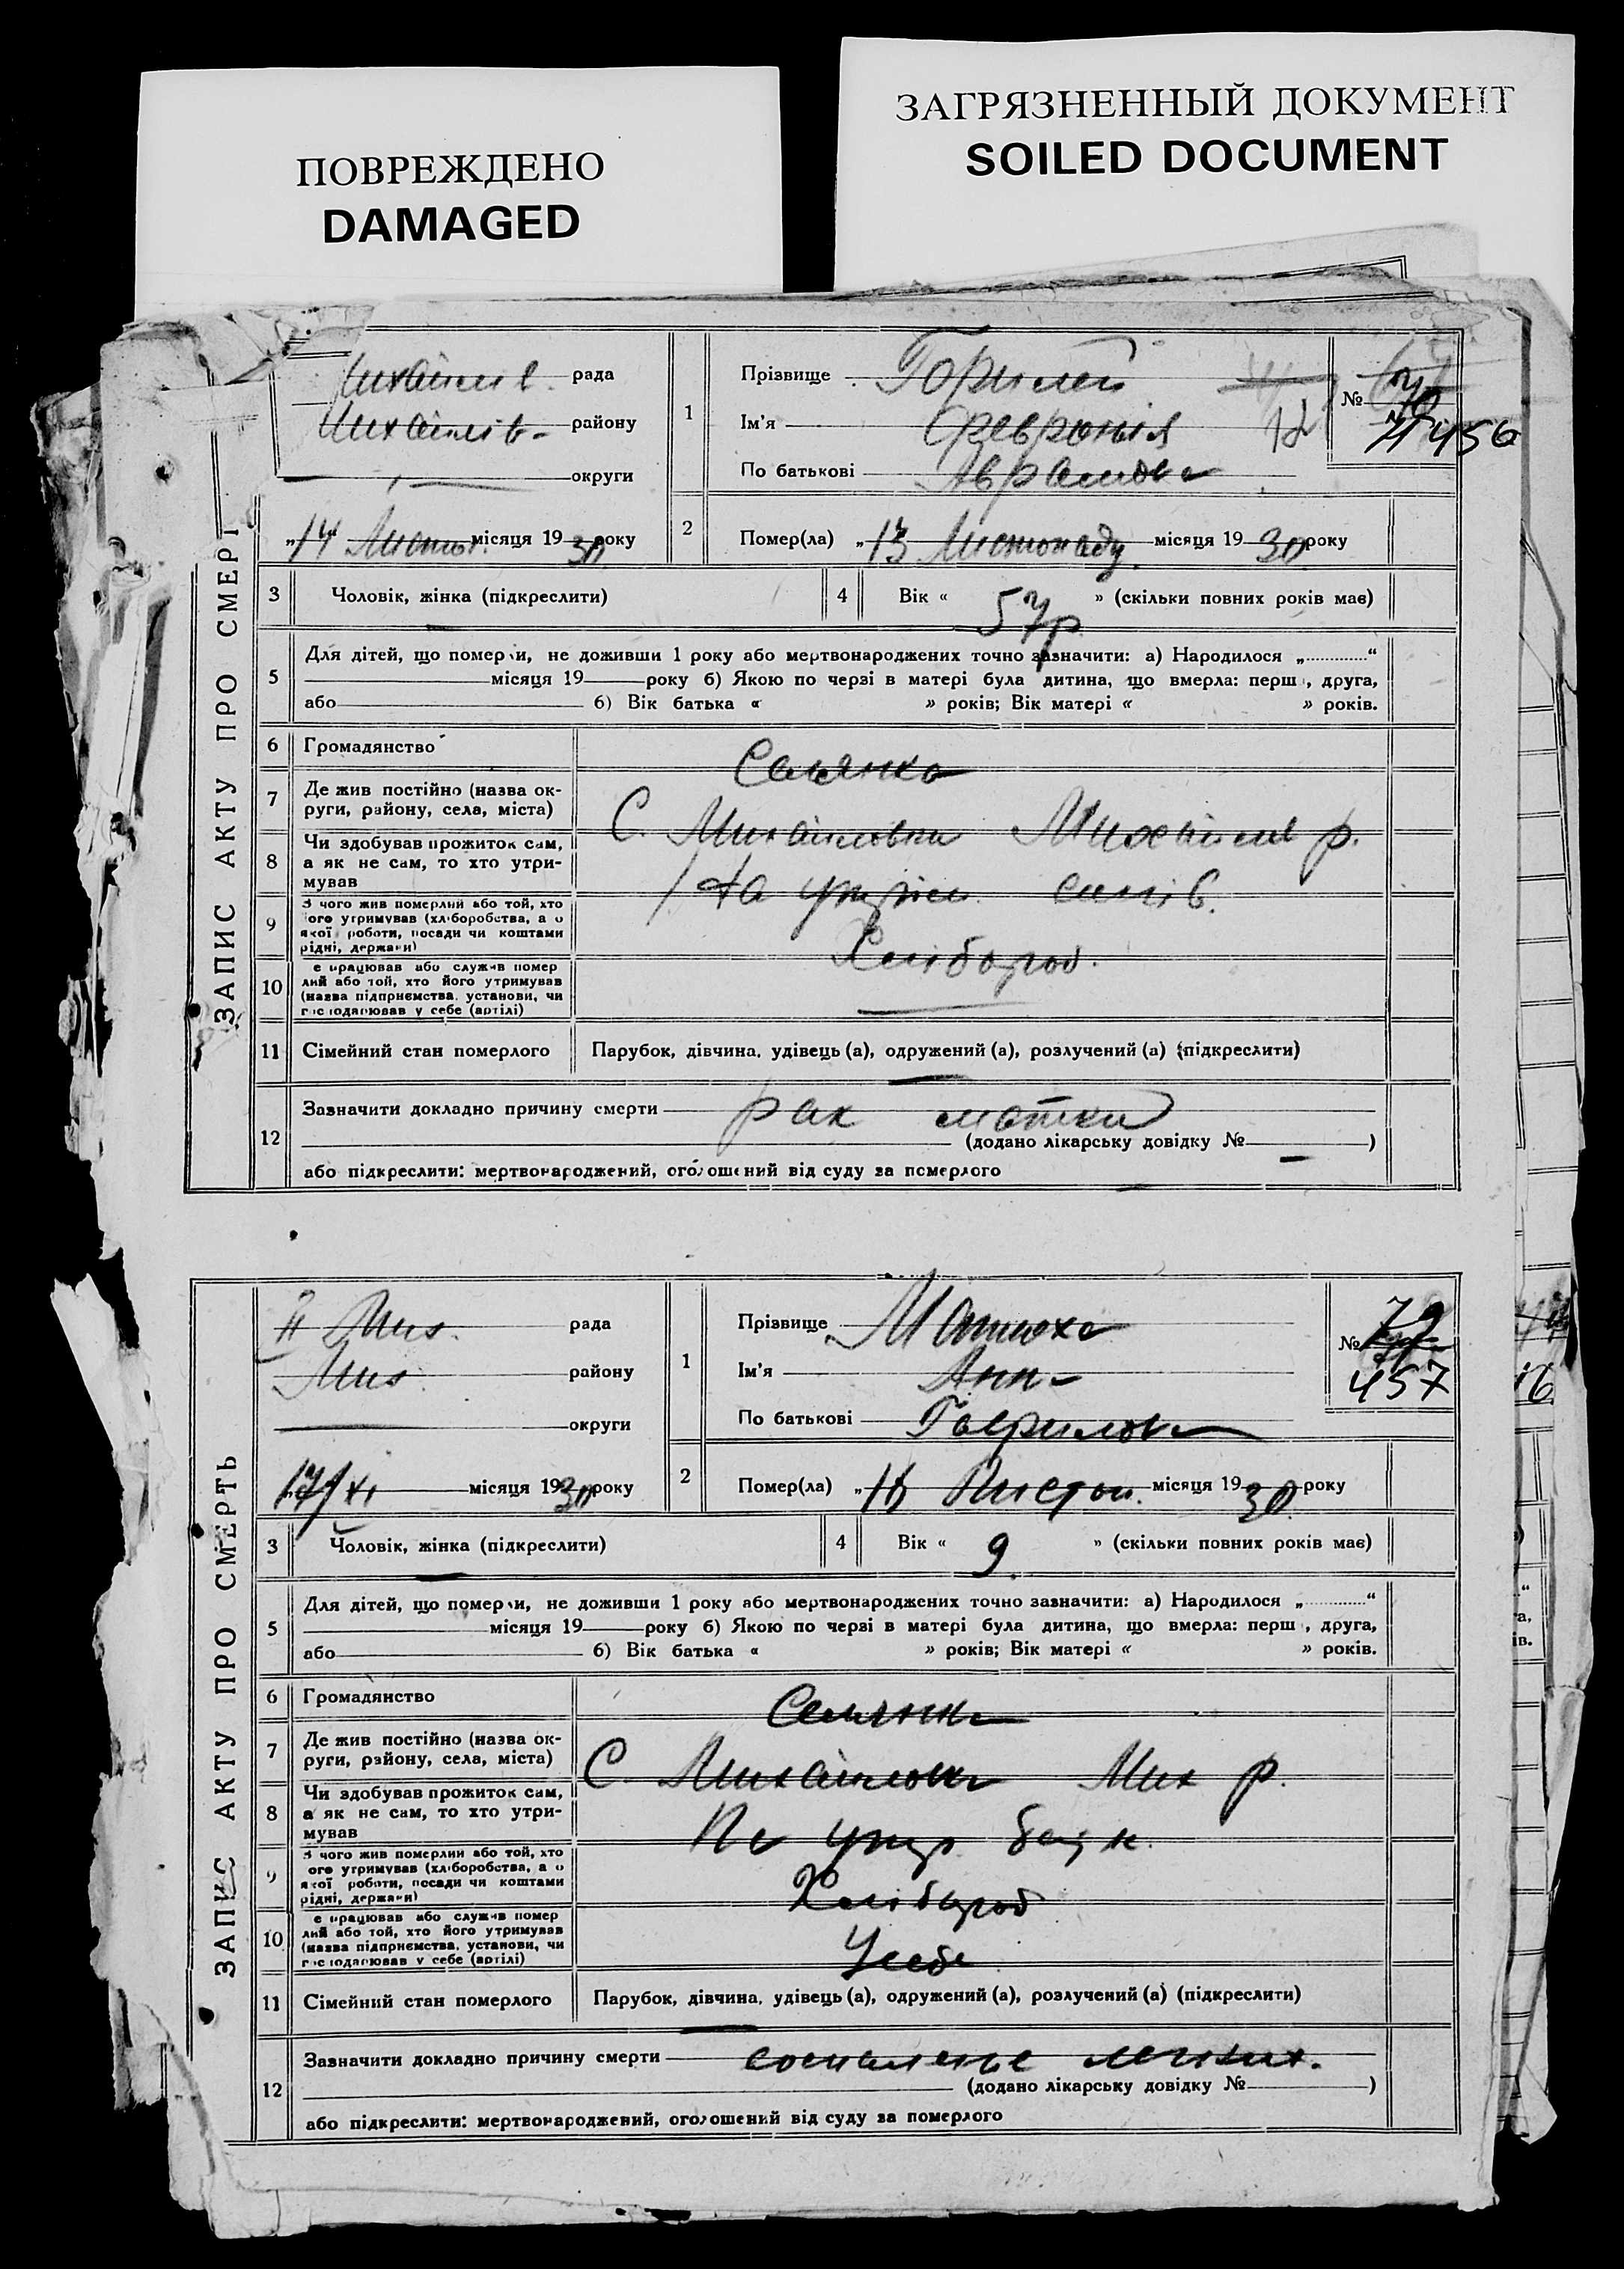 ПОВРЕЖДЕНО
DAMAGED
ЗАГРЯЗНЕННЫЙ ДОКУМЕНТ
SOILED DOCUMENT
ЗАПИС АКТУ ПРО СМЕРТ
рада
Михайлів- району
округи
1 Прізвище Горилей
Ім'я Февронія
По батькові Аврамовна
№ 456
„14" Листоп. місяця 1930 року
2 Помер(ла) „13 Листопаду місяця 1930 року
3 Чоловік, жінка (підкреслити)
4 Вік « 57 р. » (скільки повних років має)
5 Для дітей, що померли, не доживши 1 року або мертвонароджених точно зазначити: а) Народилося „............"
місяця 19 року б) Якою по черзі в матері була дитина, що вмерла: перш , друга,
або б) Вік батька « » років; Вік матері « » років.
6 Громадянство Селянка
7 Де жив постійно (назва ок-
руги, району, села, міста) С. Михайловка Михайлів р.
8 Чи здобував прожиток сам,
а як не сам, то хто утри-
мував На утрим. синів.
9 З чого жив померлий або той, хто
ого утримував (хліборобства, а о
якої роботи, посади чи коштами
рідні, держави) Хлібороб.
10 е працював або служив помер
лий або той, хто його утримував
(назва підприємства, установи, чи
господарював у себе (артілі)
11 Сімейний стан померлого Парубок, дівчина, удівець (а), одружений (а), розлучений (а) (підкреслити)
12 Зазначити докладно причину смерти рак матки
(додано лікарську довідку № )
або підкреслити: мертвонароджений, оголошений від суду за померлого
ЗАПИС АКТУ ПРО СМЕРТЬ
ІІ Мих. рада
Мих. району
округи
1 Прізвище Матюха
Ім'я Анна
По батькові Гаврилова
№ 79
457
„17/XI місяця 1930 року
2 Помер(ла) „16 Листоп. місяця 1930 року
3 Чоловік, жінка (підкреслити)
4 Вік « 9 » (скільки повних років має)
5 Для дітей, що померли, не доживши 1 року або мертвонароджених точно зазначити: а) Народилося „............"
місяця 19 року б) Якою по черзі в матері була дитина, що вмерла: перш , друга,
або б) Вік батька « » років; Вік матері « » років.
6 Громадянство Селянка
7 Де жив постійно (назва ок-
руги, району, села, міста) С. Михайловка Мих р.
8 Чи здобував прожиток сам,
а як не сам, то хто утри-
мував На утр. батьк.
9 З чого жив померлий або той, хто
ого утримував (хліборобства, а о
якої роботи, посади чи коштами
рідні, держави) Хлібороб
10 е працював або служив помер
лий або той, хто його утримував
(назва підприємства, установи, чи
господарював у себе (артілі) У себе
11 Сімейний стан померлого Парубок, дівчина, удівець (а), одружений (а), розлучений (а) (підкреслити)
12 Зазначити докладно причину смерти воспаление легких.
(додано лікарську довідку № )
або підкреслити: мертвонароджений, оголошений від суду за померлого